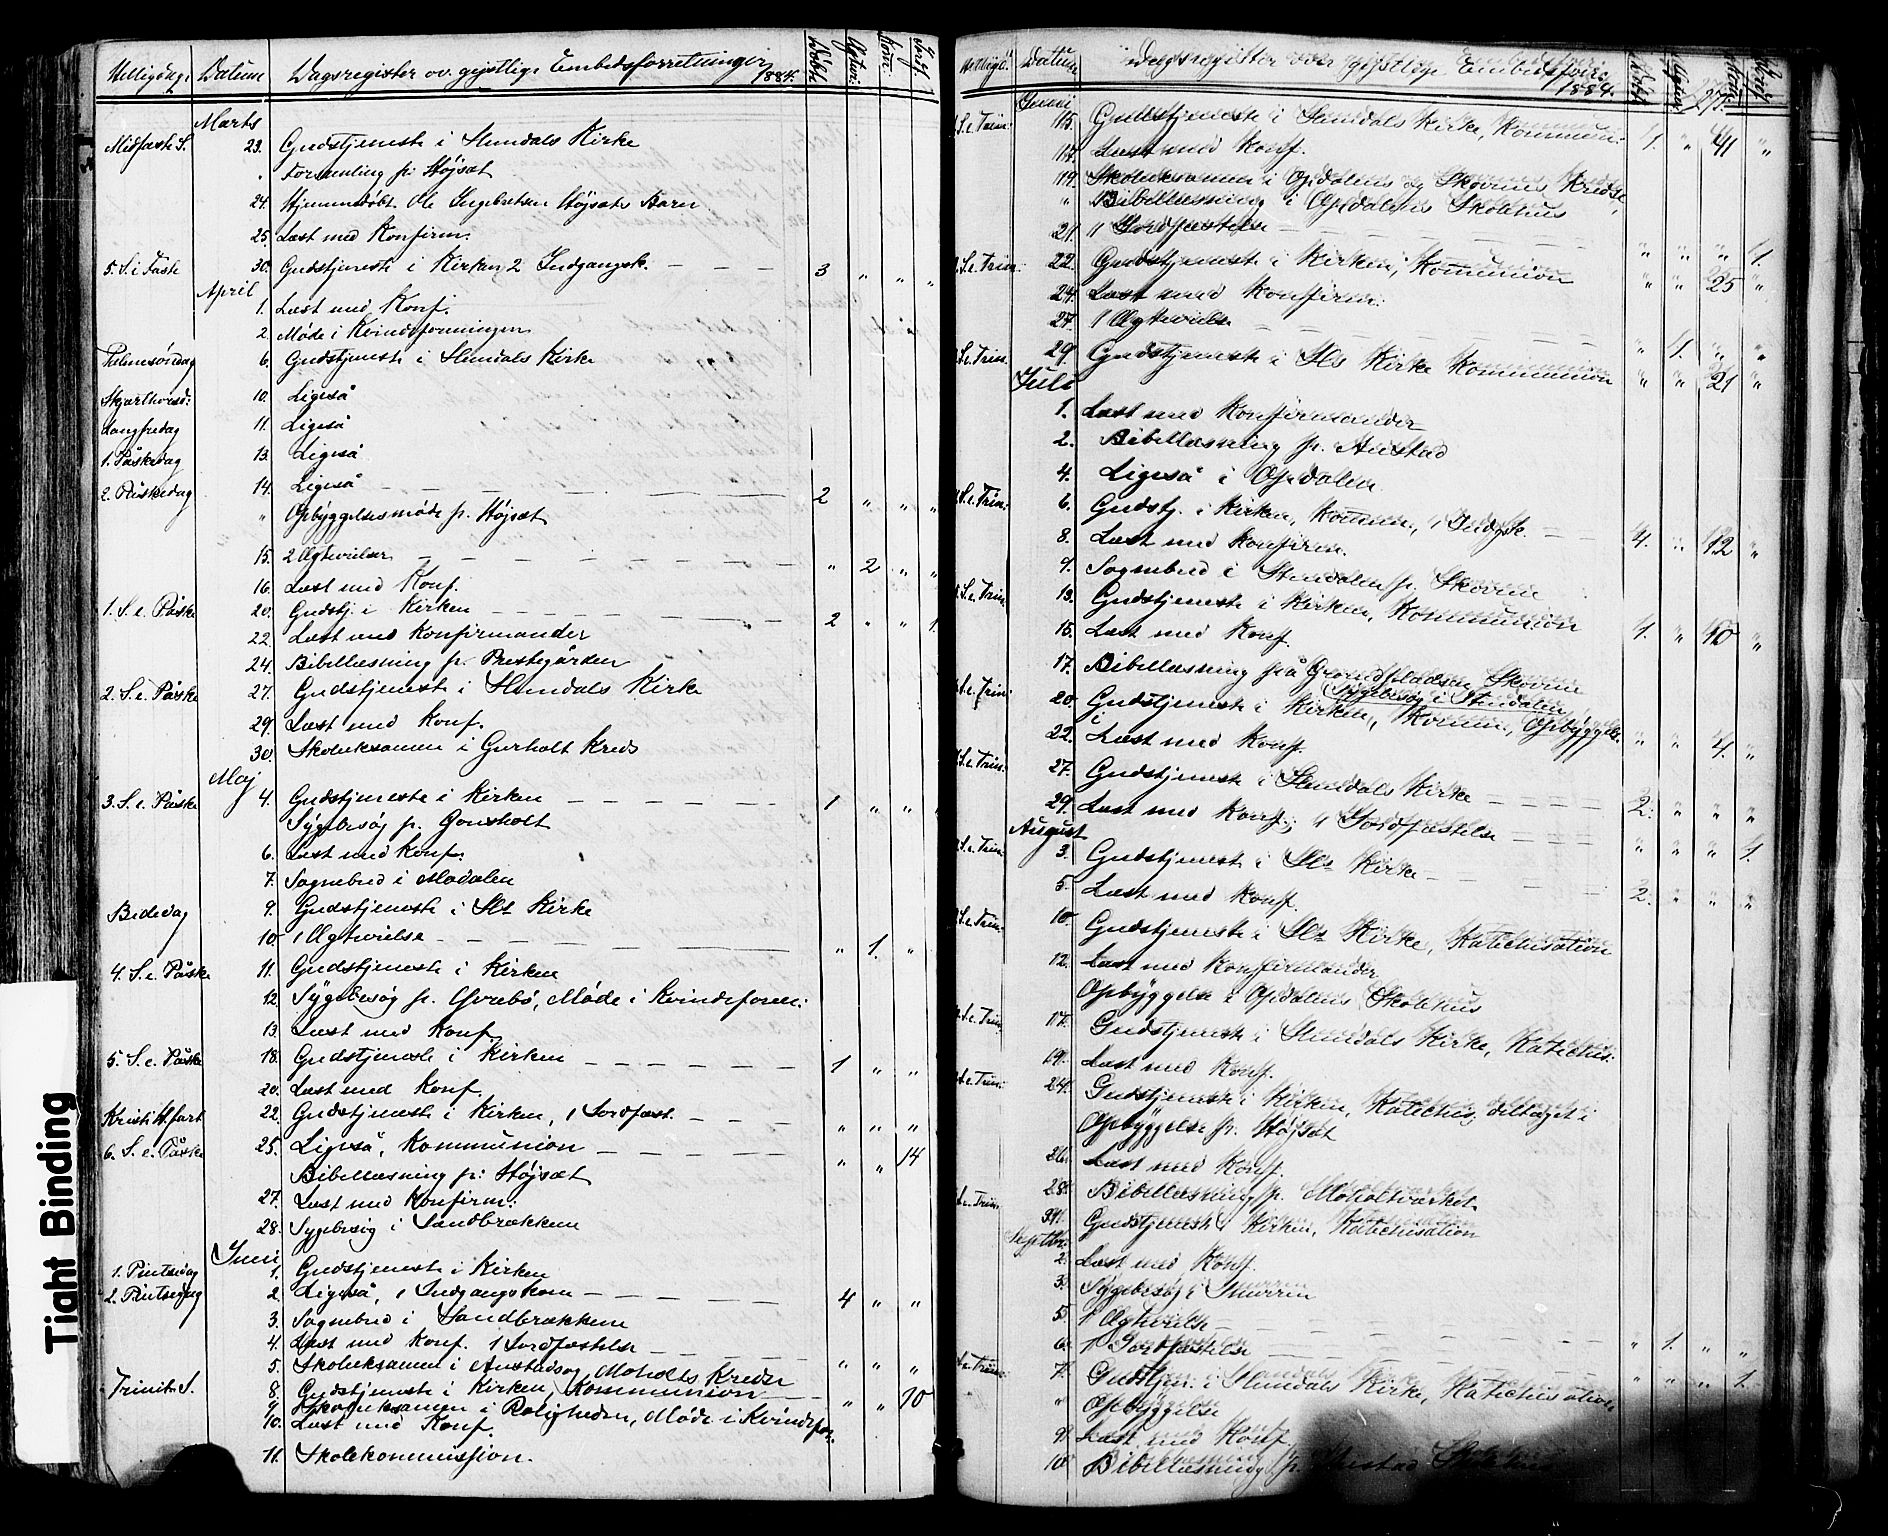 Helligdag. Datum Dagsregister ov. gejstlige Embedsforretninger 1884. Døbte Ægtevi: Kom: Jordf.
Marts
Midfaste S. 23. Gudstjeneste i Slemdals Kirke
" Forsamling p. Højsæt
24. Hjemmedøbt Ole Ingebretsen Højsæts Barn
25. Læst med Konfirm.
5. S. i Faste 30. Gudstjeneste i Kirken, 2 Indgangsk. — — — 3 " " "
April
1. Læst med Konf.
2. Møde i Kvindeforeningen
Palmesøndag 6. Gudstjeneste i Slemdals Kirke
Skjærthorsd: 10. Ligeså
Langfredag 11. Ligeså
1. Påskedag 13. Ligeså
2. Påskedag 14. Ligeså — — — 2 " " "
" Opbyggelsesmøde p. Højsæt
15. 2 Ægtevielser — — — " 2 " "
16. Læst med Konf.
1. S. e. Påske 20. Gudstj. i Kirken — — — 2 " " 1.
22. Læst med Konfirmander
24. Bibellæsning p. Prestegården
2. S. e. Påske 27. Gudstjeneste i Slemdals Kirke
29. Læst med Konf.
30. Skoleeksamen i Gurholt Kreds
Maj
3. S. e. Påske 4. Gudstjeneste i Kirken — — — 1 " " "
Sygebesøg p. Gonsholt
6. Læst med Konf.
7. Sognebud i Modalen
Bededag 9. Gudstjeneste i Sls Kirke
10. 1 Ægtevielse — — — " 1. "
4. S. e. Påske 11. Gudstjeneste i Kirken
12. Sygebesøg p. Øvrebø, Møde i Kvindeforen:
13. Læst med Konf.
5. S. e. Påske 18. Gudstjeneste i Kirken — — — 1 " "
20. Læst med Konf.
Kristi H.fart 22. Gudstjeneste i Kirken, 1 Jordfæst. — — " " "
6. S. e. Påske 25. Ligeså, Kommunion — — — " " 14
Bibellæsning p: Højsæt
27. Læst med Konfirm:
28. Sygebesøg i Sandbrækkene
Juni
1. Pintsedag 1. Gudstjeneste i Kirken
2. Pintsedag 2. Ligeså, 1 Indgangskom — — — 4 " "
3. Sognebud i Sandbrækkene
4. Læst med Konf. 1 Jordfæstelse — — " " "
5. Skoleeksamen i Austad og Moholts Kredse
Trinit. S. 8. Gudstjeneste i Kirken, Kommunion — — " " 10
9 Skoleeksamen i Roligheden, Møde i Kvindefor.
10. Læst med Konf.
11. Skolekommission.
Helligd. Datum Dagsregister over gejstlige Embedsforr. 1884. Døbte Ægtevi
Juni
S. e. Trin: 15. Gudstjeneste i Slemdals Kirke, Kommun: 1. " 41 "
17. Læst med Konf.
19. Skoleeksamen i Opdalens og Skovens Kredse,
" Bibellæsning i Opdalens Skolehus
21. 1 Jordfæstelse — — — " " " 1.
S. e. Trin: 22. Gudstjeneste i Kirken, Kommunion " " 25 "
24. Læst med Konfirm:
27. 1 Ægtevielse — — — " 1. " "
S. e. Trin. 29 Gudstjeneste i Sls Kirke Kommunion " " 21 "
Juli
1. Læst med Konfirmander
2. Bibellæsning p. Austad
4. Ligeså i Opdalen
S. e. Trin: 6. Gudstj. i Kirken, Kommun, 1 Indgsk. — — 4. " 12 "
8. Læst med Konfirm.
9. Sognebud i Stendalen p. Skoven
S. e. Trin. 13. Gudstjeneste i Kirken, Kommunion 1. " 10 "
15. Læst med Konf.
17. Bibellæsning på Grondfladsen Skoven
Sygebesøg i Stendalen
S. e. Trin: 20. Gudstjeneste i Kirken, Kommun, Opbyggels. " " 4. "
22. Læst med Konf.
S. e. Trin: 27. Gudstjeneste i Slemdals Kirke — — 2. " " "
29. Læst med Konf.; 1 Jordfæstelse — — " " " 1.
August
S. e. Trin: 3. Gudstjeneste i Sls Kirke — — — 2. " " "
5. Læst med Konf.
S. e. Trin: 10. Gudstjeneste i Sls Kirke, Katechisation
12. Læst med Konfirmander
Opbyggelse i Opdalens Skolehus
S. e. Trin: 17. Gudstjeneste i Slemdals Kirke, Katechis:
19. Læst med Konf.
S. e. Trin: 24. Gudstjeneste i Kirken, Katechis, deltaget i
Opbyggelse p. Højsæt
26. Læst med Konf.
28. Bibellæsning p. Moholtværket.
S. e. Trin: 31. Gudstjeneste i Kirken, Katechisation
Septbr.
2. Læst med Konf.
3. Sygebesøg i Snurren
5. 1 Ægtevielse — — — " 1. " "
6. 1 Jordfæstelse — — — " " " 1.
S. e. Trin: 7. Gudstjen: i Slemdals Kirke, Katechisation
" Opbyggelse
9. Læst med Konf.
10. Bibellæsning p. Austad Skolehus
Tight Binding